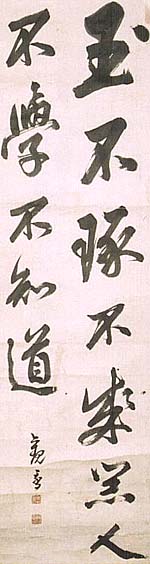 玉不琢不成器人
不學不知道